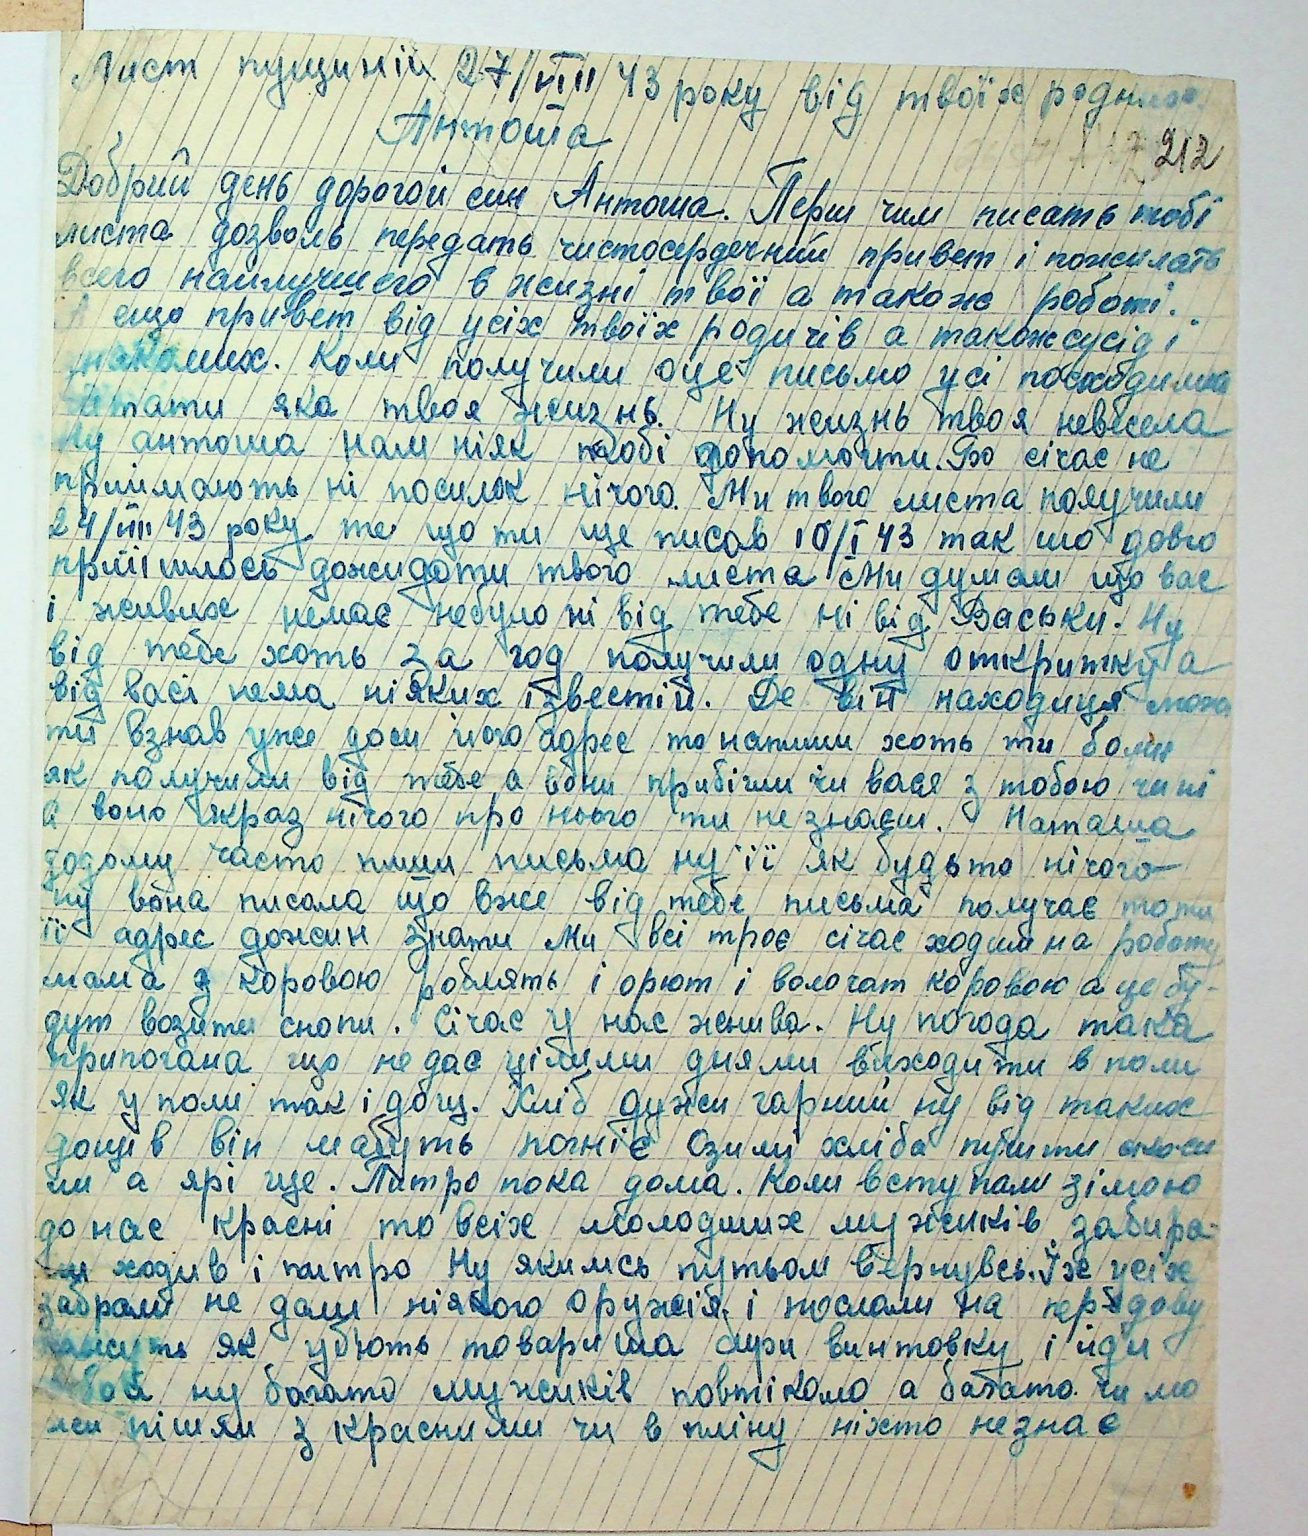 Лист пущиний 27/VIII 43 року від твоїх родних.
Антоша
212
Добрий день дорогой син Антоша. Перш чим писать тобі
листа дозволь передать чистосердечний привет і пожилать
всего наилучшего в жизні твої а також роботі.
А ещо привет від усіх твоїх родичів а також сусід і
знакомих. Коли получили оце письмо усі посходились
читати яка твоя жизнь. Ну жизнь твоя невесела
Ну антоша нам ніяк тобі допомогти. Бо січас не
приймають ні посилок нічого. Ми твого листа получили
24/VIII 43 року те що ти ще писав 10/I 43 так шо довго
прийшлось дожидоти твого листа Ми думали що вас
і живих немає небуло ні від тебе ні від Васьки. Ну
від тебе хоть за год получили одну откритку а
від васі нема ніяких ізвестій. Де він находиця може
ти взнав уже доси його адрес то напиши хоть ти
як получили від тебе а вони прибігли чи вася з тобою чи ні
а воно якраз нічого про нього ти не знаєш. Наташа
додому часто пиши письма ну її як будьто нічого
ну вона писала що вже від тебе письма получає то ти
її адрес должин знати Ми всі троє січас ходим на роботу
мама з коровою роблять і орют і волочат коровою а це бу-
дут возити снопи. Січас у нас жнива. Ну погода така
припогана що не дає цілими днями виходити в поли
як у поли так і дощ. Хліб дужи гарний ну від таких
дощів він мабуть погніє Озимі хліба
ли а ярі ще. Питро пока дома. Коли вступали зімою
до нас красні то всіх молодших мужиків забира-
ли ходив і питро Ну якимсь путьом вернувсь. Їх усіх
забрали не дали ніякого оружія і послали на передову
кажуть як убють товариша бири винтовку і йди
ну багато мужиків повтікало а багато чи мо
пішли з красними чи в пліну ніхто незнає